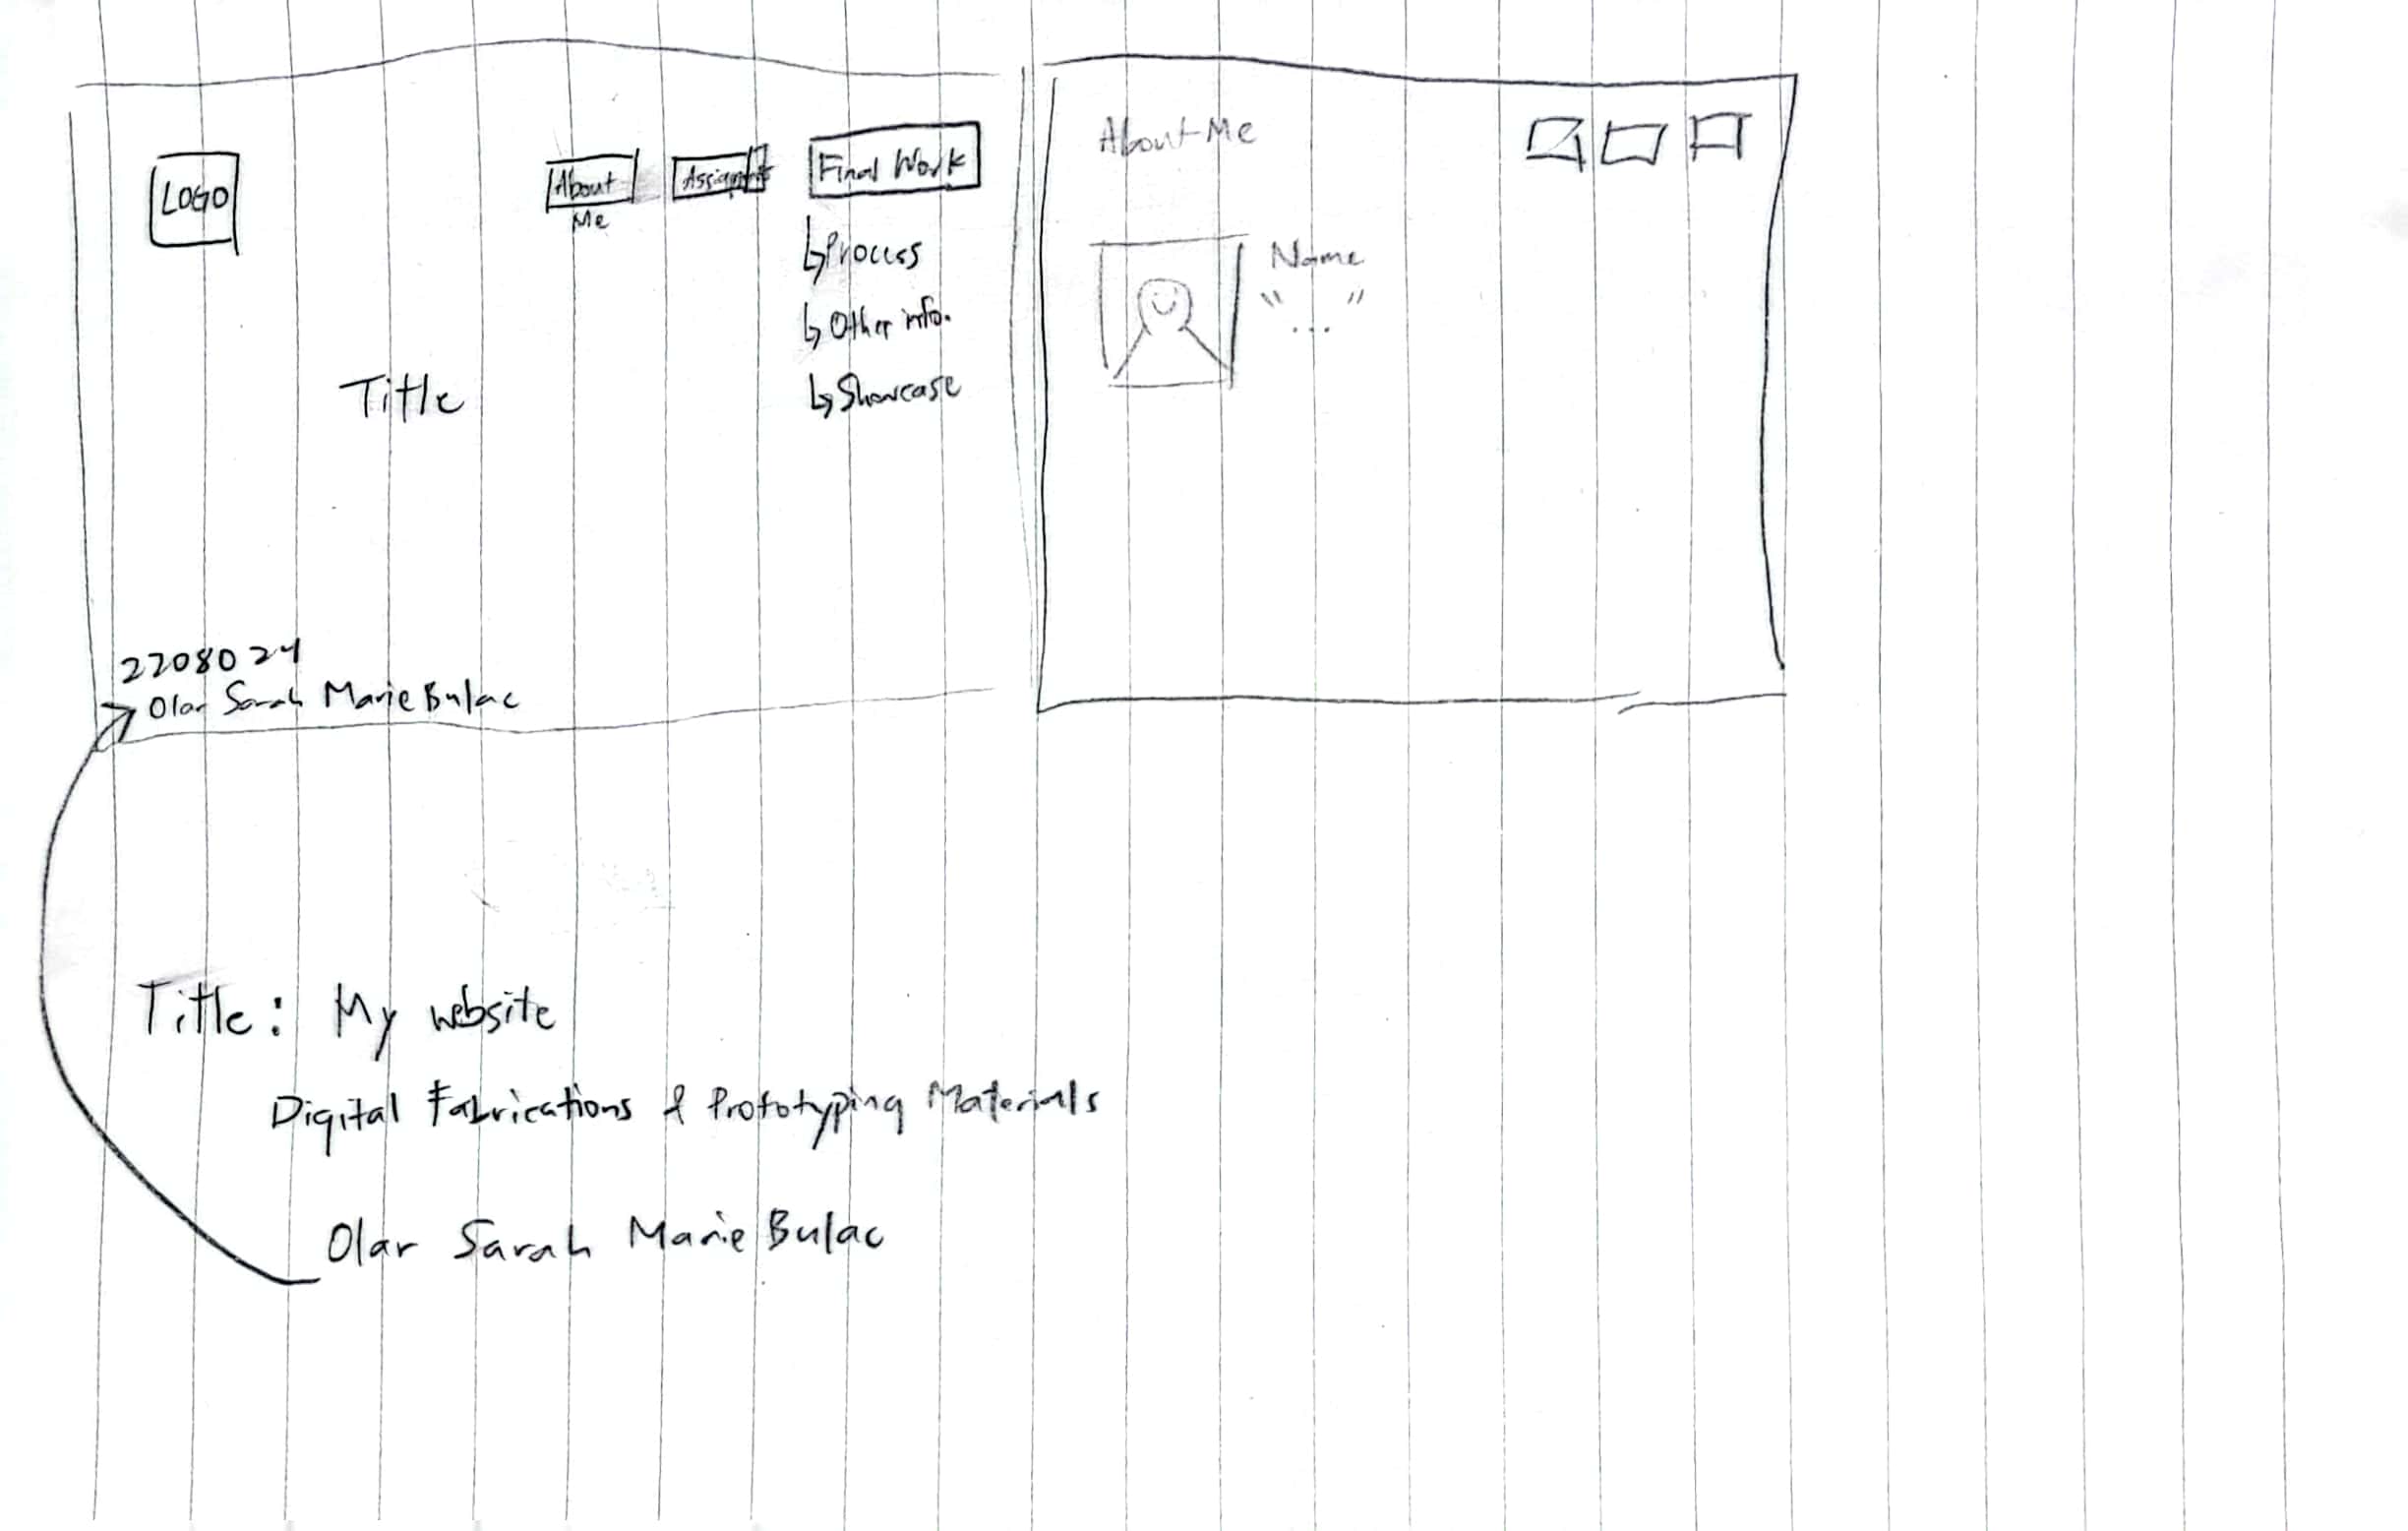 LOGO
About
Me
Assignments
Final Work
↳Process
↳Other info.
↳Showcase
Title
2208024
Olar Sarah Marie Bulac
About Me
Name
" "
...
Title: My website
Digital Fabrications & Prototyping Materials
Olar Sarah Marie Bulac